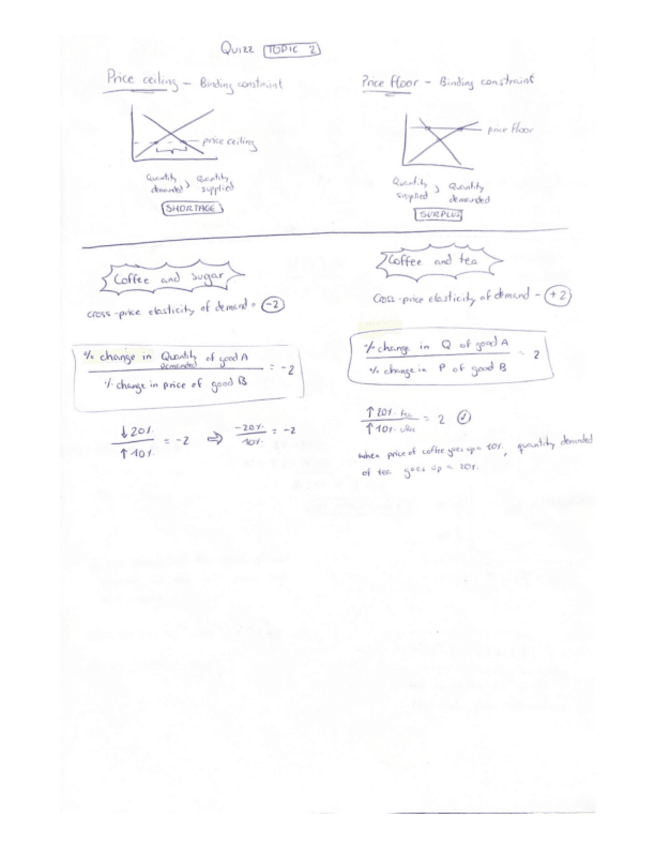 Quizz TOPIC 2
Price ceiling – Binding constraint
price ceiling
Quantity demanded > Quantity supplied
SHORTAGE
Price floor – Binding constraint
price floor
Quantity supplied > Quantity demanded
SURPLUS
Coffee and sugar
cross-price elasticity of demand = -2
% change in Quantity demanded of good A
% change in price of good B
= -2
↓20%
↑10%
= -2 ⇒
-20%
10%
= -2
Coffee and tea
cross-price elasticity of demand = +2
% change in Q of good A
% change in P of good B
= 2
↑20% tea
↑10%
= 2
when price of coffee goes up 10%, quantity demanded
of tea goes up 20%.